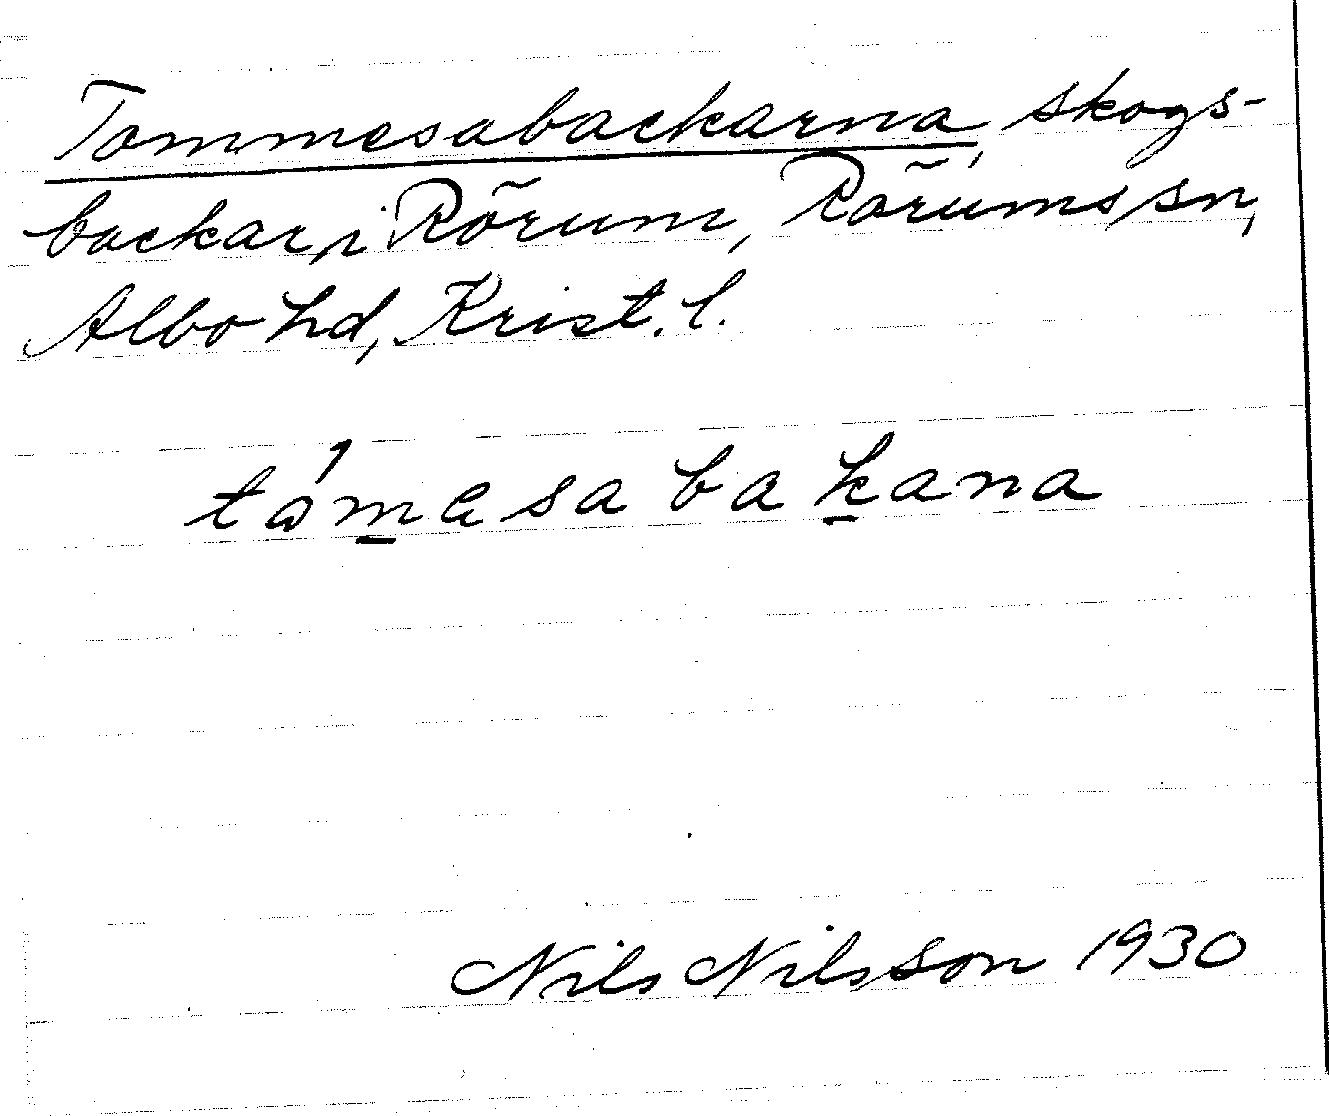 Tommesabackarna skogs-
backar, i Rõrum, Rõrums sn,
Albo hd, Krist. l.
tåmesabakana
Nils Nilsson 1930